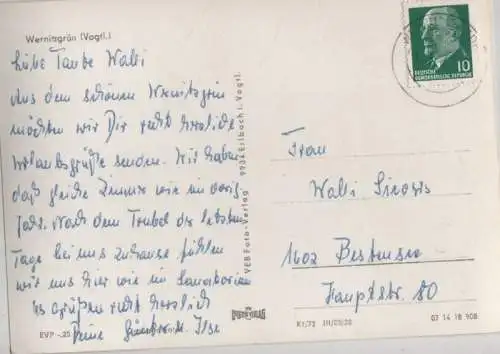 Wernitzgrün (Vogtl.)
Liebe Tante Walli
Aus dem schönen Wernitzgrün
möchten wir Dir recht herzliche
Urlaubsgrüße senden. Wir haben
das gleiche Zimmer wie im vorig.
Jahr. Nach dem Trubel der letzten
Tage bei uns zuhause fühlen
wir uns hier wie im Sanatorium
Es grüßen recht herzlich
Deine Ilse
EVP -.25
VEB Foto-Verlag 9934 Erlbach i. Vogtl.
10
DEUTSCHE
DEMOKRATISCHE REPUBLIK
Frau
Walli
1602 Bestensee
Hauptstr. 80
K1/72 III/05/20
03 14 18 908